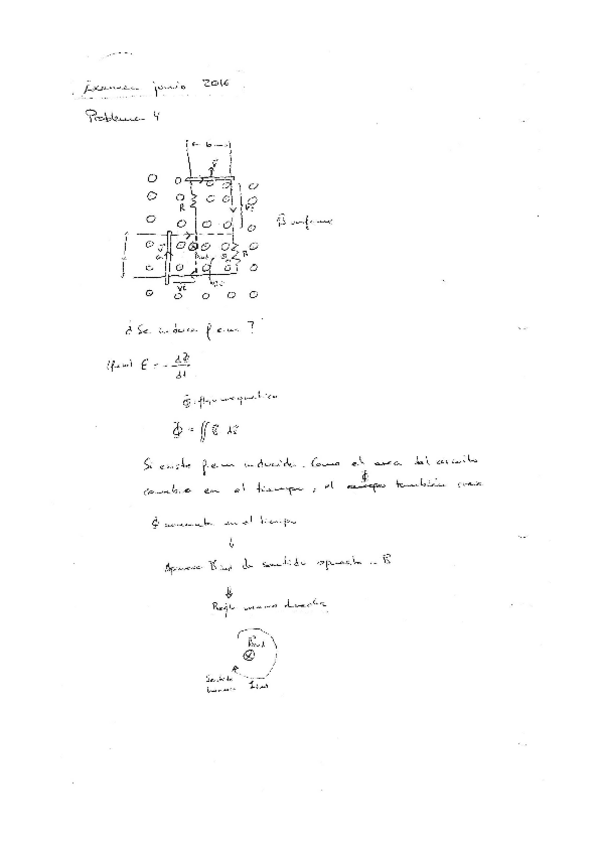 Examen junio 2016
Problema 4
b
R
B uniforme
R
¿ Se induce f em ?
(fem) ε = - dΦ/dt
Φ: flujo magnetico
Φ = ∬ B ds
Si existe f em inducida. Como el area del circuito
cambia en el tiempo, el Φ tambien
Φ aumenta en el tiempo
↓
Aparece Bind de sentido opuesto a B
↓
Regla mano derecha
Bind
Sentido
horario Iind